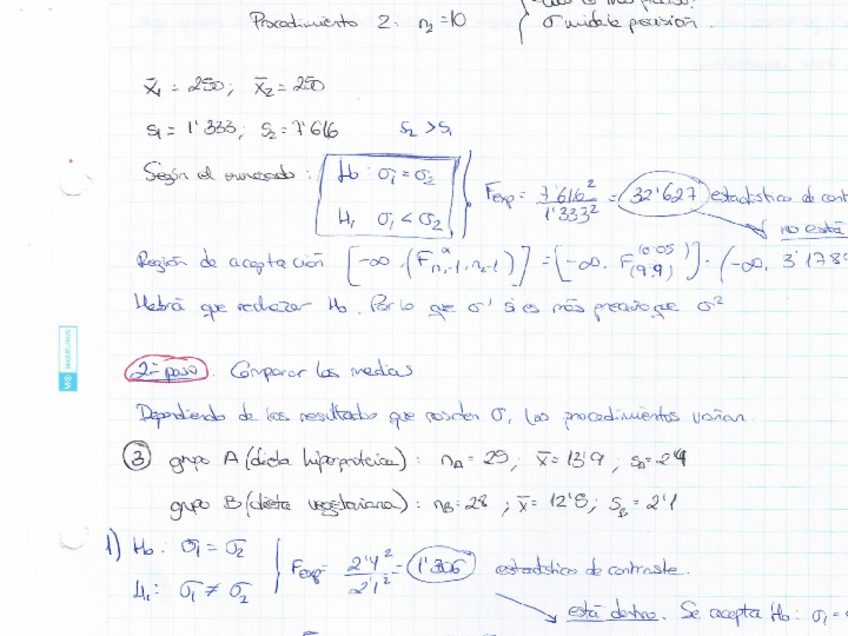 Procedimiento 2: n₂=10 { σ mide la precisión.
x̄₁ = 250; x̄₂ = 250
s₁ = 1'333; s₂ = 7'616 s₂ > s₁
Según el enunciado: H₀: σ₁ = σ₂
H₁ σ₁ < σ₂
Fexp = 7'616² / 1'333² = 32'627 estadístico de cont
no está
Región de aceptación [-∞, (F^α n₁-1, n₂-1)] = [-∞, F^(0'05) (9,9)] . (-∞, 3'178
Habrá que rechazar H₀. Por lo que σ¹ si es más preciso que σ²
2º paso. Comparar las medias
Dependiendo de los resultados que nos den σ, los procedimientos varían.
③ grupo A (dieta hiperproteica): nA = 25; x̄ = 13'9; sA = 2'4
grupo B (dieta vegetariana): nB = 28; x̄ = 12'5; sB = 2'1
1) H₀: σ₁ = σ₂
H₁: σ₁ ≠ σ₂
Fexp = 2'4² / 2'1² = 1'306 estadístico de contraste.
está dentro. Se acepta H₀: σ₁ =